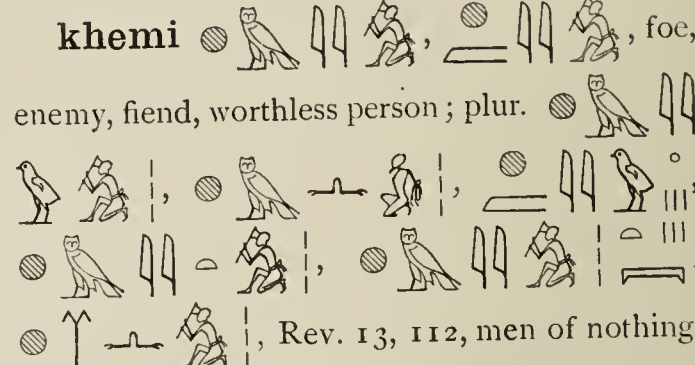 khemi 𓐍𓅓𓇋𓇋𓀑, 𓐍𓐝𓇋𓇋𓀑, foe,
enemy, fiend, worthless person; plur. 𓐍𓅓𓇋𓇋
𓅱𓀑𓏪, 𓐍𓅓𓂜𓀏𓏪, 𓐍𓐝𓇋𓇋𓅱𓈒𓏥,
𓐍𓅓𓇋𓇋𓏏𓀑𓏪, 𓐍𓅓𓇋𓇋𓀑𓏪
𓐍 𓂜𓀑𓏪, Rev. 13, 112, men of nothing